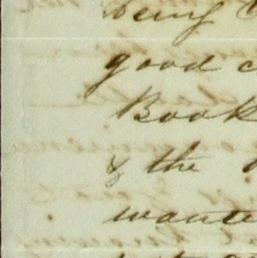 being
good c
Book
& the
wante